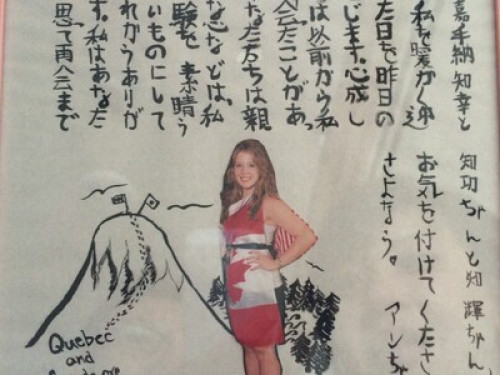 嘉手納 知幸と
私を暖かく迎
た日を昨日の
じます。心成し
は以前から私
会たことがあっ
なたたちは親
験を素晴ら
いものにして
れからありが
す。私はあなた
思て再会まで
知功ちゃんと知輝ちゃん、
お気を付けてくださ
さよなら。アンちゃ
Quebec
and